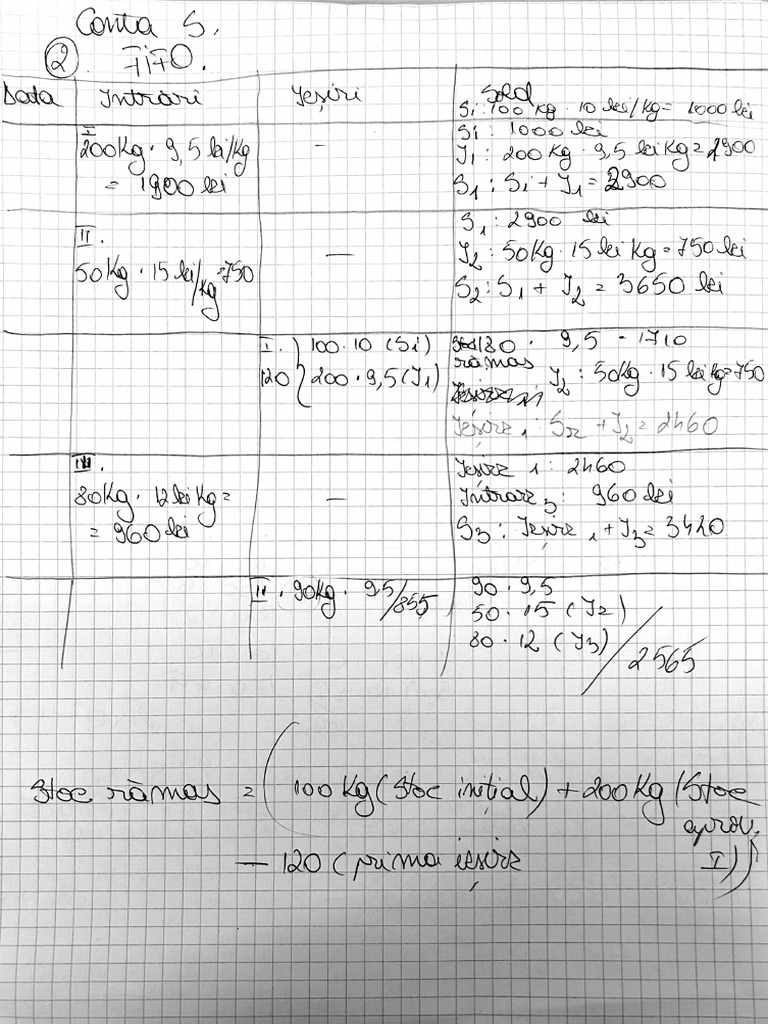 Conta S.
② FIFO.
Data Intrări Ieșiri Sold
Si: 100 kg · 10 lei/kg = 1000 lei
I
200Kg · 9,5 lei/kg
= 1900 lei
—
Si : 1000 lei
I1 : 200 Kg · 9,5 lei Kg = 1900
S1 : Si + I1 = 2900
II.
50Kg · 15 lei/kg = 750
—
S1 : 2900 lei
I2 : 50Kg · 15 lei Kg = 750 lei
S2 : S1 + I2 = 3650 lei
I. 100 · 10 (Si)
120 200 · 9,5 (I1)
180 · 9,5 = 1710
rămas
I2 : 50Kg · 15 lei Kg = 750
Ieșire 1 : S2 + I2 = 2460
III.
80Kg · 12 lei Kg =
= 960 lei
—
Ieșire 1 : 2460
Intrare 3 : 960 lei
S3 : Ieșire 1 + I3 = 3420
II. 90Kg · 9,5/855
90 · 9,5
50 · 15 (I2)
80 · 12 (I3)
/ 2565
Stoc rămas = (100 Kg (Stoc inițial) + 200 Kg (Stoc
aprov.
I))
— 120 (prima ieșire